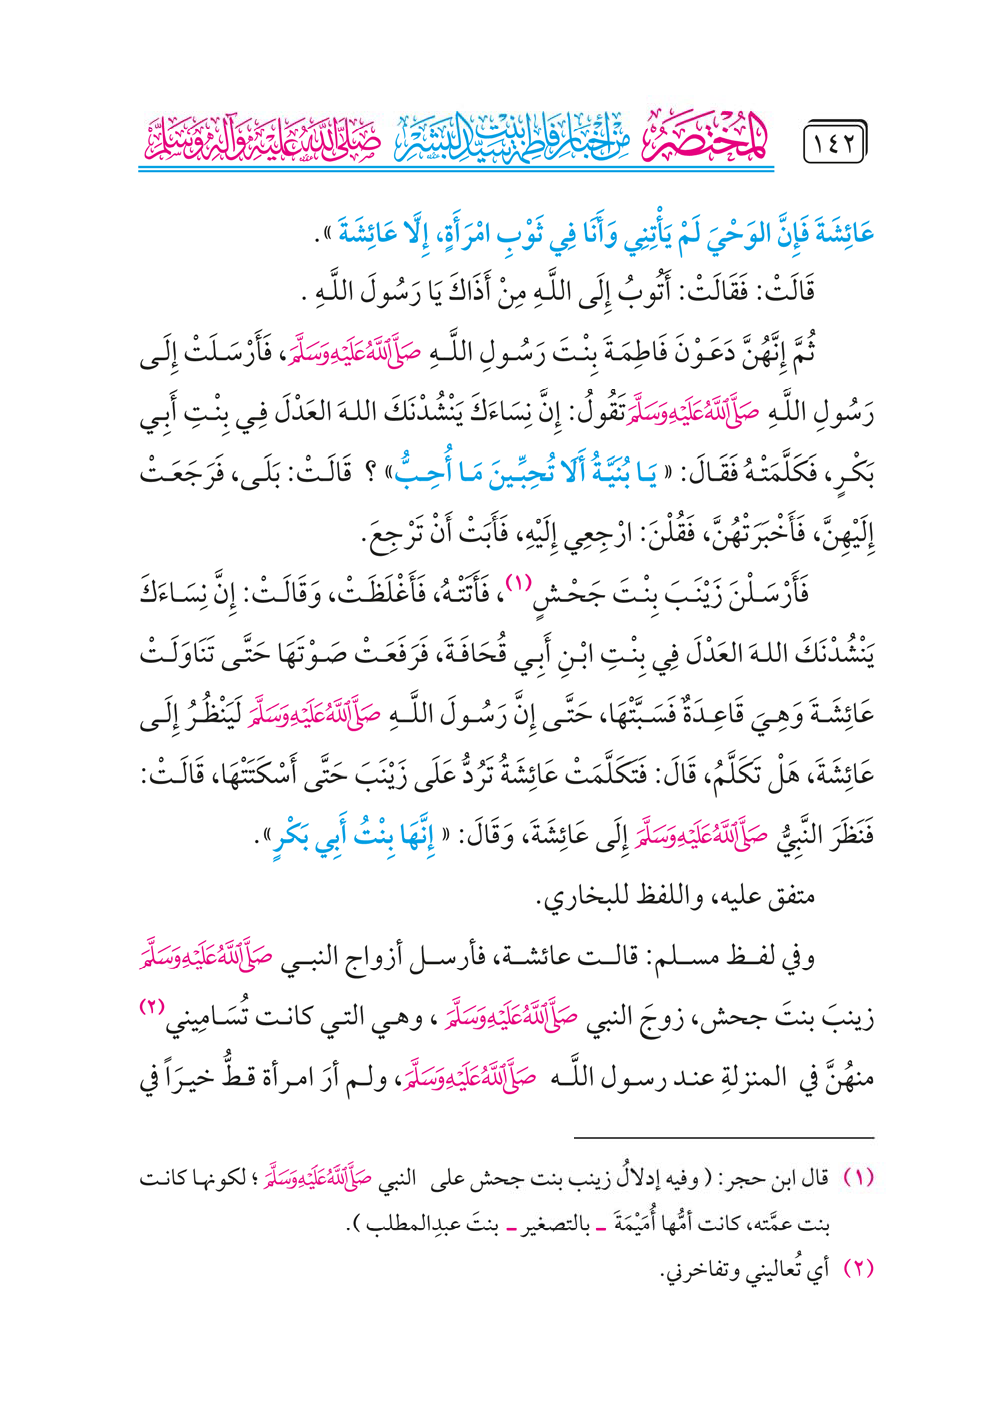 ١٤٢
المختصر من أخبار فاطمة بنت سيد البشر صلى الله عليه وآله وسلم
عَائِشَةَ فَإِنَّ الوَحْيَ لَمْ يَأْتِنِي وَأَنَا فِي ثَوْبِ امْرَأَةٍ، إِلَّا عَائِشَةَ ».
قَالَتْ: فَقَالَتْ: أَتُوبُ إِلَى اللَّهِ مِنْ أَذَاكَ يَا رَسُولَ اللَّهِ .
ثُمَّ إِنَّهُنَّ دَعَوْنَ فَاطِمَةَ بِنْتَ رَسُولِ اللَّهِ صَلَّى اللَّهُ عَلَيْهِ وَسَلَّمَ، فَأَرْسَلَتْ إِلَى
رَسُولِ اللَّهِ صَلَّى اللَّهُ عَلَيْهِ وَسَلَّمَ تَقُولُ: إِنَّ نِسَاءَكَ يَنْشُدْنَكَ اللهَ العَدْلَ فِي بِنْتِ أَبِي
بَكْرٍ، فَكَلَّمَتْهُ فَقَالَ: « يَا بُنَيَّةُ أَلَا تُحِبِّينَ مَا أُحِبُّ» ؟ قَالَتْ: بَلَى، فَرَجَعَتْ
إِلَيْهِنَّ، فَأَخْبَرَتْهُنَّ، فَقُلْنَ: ارْجِعِي إِلَيْهِ، فَأَبَتْ أَنْ تَرْجِعَ.
فَأَرْسَلْنَ زَيْنَبَ بِنْتَ جَحْشٍ(١)، فَأَتَتْهُ، فَأَغْلَظَتْ، وَقَالَتْ: إِنَّ نِسَاءَكَ
يَنْشُدْنَكَ اللهَ العَدْلَ فِي بِنْتِ ابْنِ أَبِي قُحَافَةَ، فَرَفَعَتْ صَوْتَهَا حَتَّى تَنَاوَلَتْ
عَائِشَةَ وَهِيَ قَاعِدَةٌ فَسَبَّتْهَا، حَتَّى إِنَّ رَسُولَ اللَّهِ صَلَّى اللَّهُ عَلَيْهِ وَسَلَّمَ لَيَنْظُرُ إِلَى
عَائِشَةَ، هَلْ تَكَلَّمُ، قَالَ: فَتَكَلَّمَتْ عَائِشَةُ تَرُدُّ عَلَى زَيْنَبَ حَتَّى أَسْكَتَتْهَا، قَالَتْ:
فَنَظَرَ النَّبِيُّ صَلَّى اللَّهُ عَلَيْهِ وَسَلَّمَ إِلَى عَائِشَةَ، وَقَالَ: « إِنَّهَا بِنْتُ أَبِي بَكْرٍ».
متفق عليه، واللفظ للبخاري.
وفي لفظ مسلم: قالت عائشة، فأرسل أزواج النبي صَلَّى اللَّهُ عَلَيْهِ وَسَلَّمَ
زينبَ بنتَ جحش، زوجَ النبي صَلَّى اللَّهُ عَلَيْهِ وَسَلَّمَ ، وهي التي كانت تُسَامِيني(٢)
منهُنَّ في المنزلةِ عند رسول اللَّه صَلَّى اللَّهُ عَلَيْهِ وَسَلَّمَ، ولم أرَ امرأة قطُّ خيرَاً في
(١) قال ابن حجر: ( وفيه إدلالُ زينب بنت جحش على النبي صَلَّى اللَّهُ عَلَيْهِ وَسَلَّمَ ؛ لكونها كانت
بنت عمَّته، كانت أمُّها أُمَيْمَةَ ـ بالتصغير ـ بنتَ عبدِالمطلب ).
(٢) أي تُعاليني وتفاخرني.